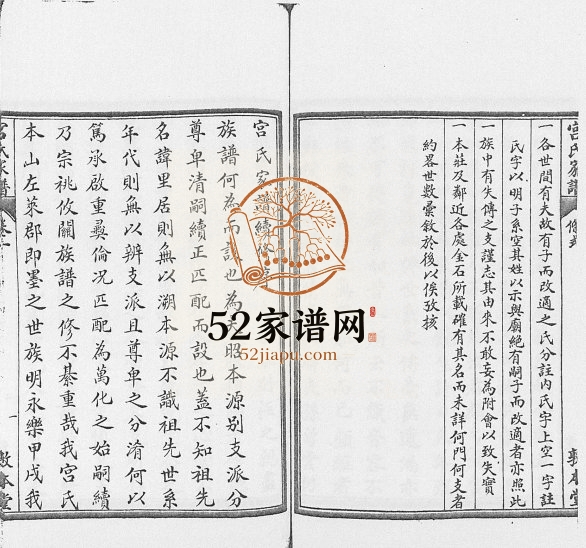 宫氏家譜
敦本堂
一各世間有夫故有子而改適之氏分註内氏字上空一字註
氏字以明子系空其姓以示與廟絕有嗣子而改適者亦照此
一族中有失傳之支謹志其由來不敢妄為附會以致失實
一本莊及鄰近各處金石所載確有其名而未詳何門何支者
約畧世數彙敘於後以俟攷核
宫氏家譜
族譜何為而設也為夫昭本源别支派分
尊卑清嗣續正匹配而設也蓋不知祖先
名諱里居則無以溯本源不識祖先世系
年代則無以辨支派且尊卑之分淆何以
篤承啟重彝倫况匹配為萬化之始嗣續
乃宗祧攸關族譜之修不綦重哉我宫氏
本山左萊郡即墨之世族明永樂甲戌我
宫氏家譜 卷一
一
敦本堂
52家谱网
52jiapu.com